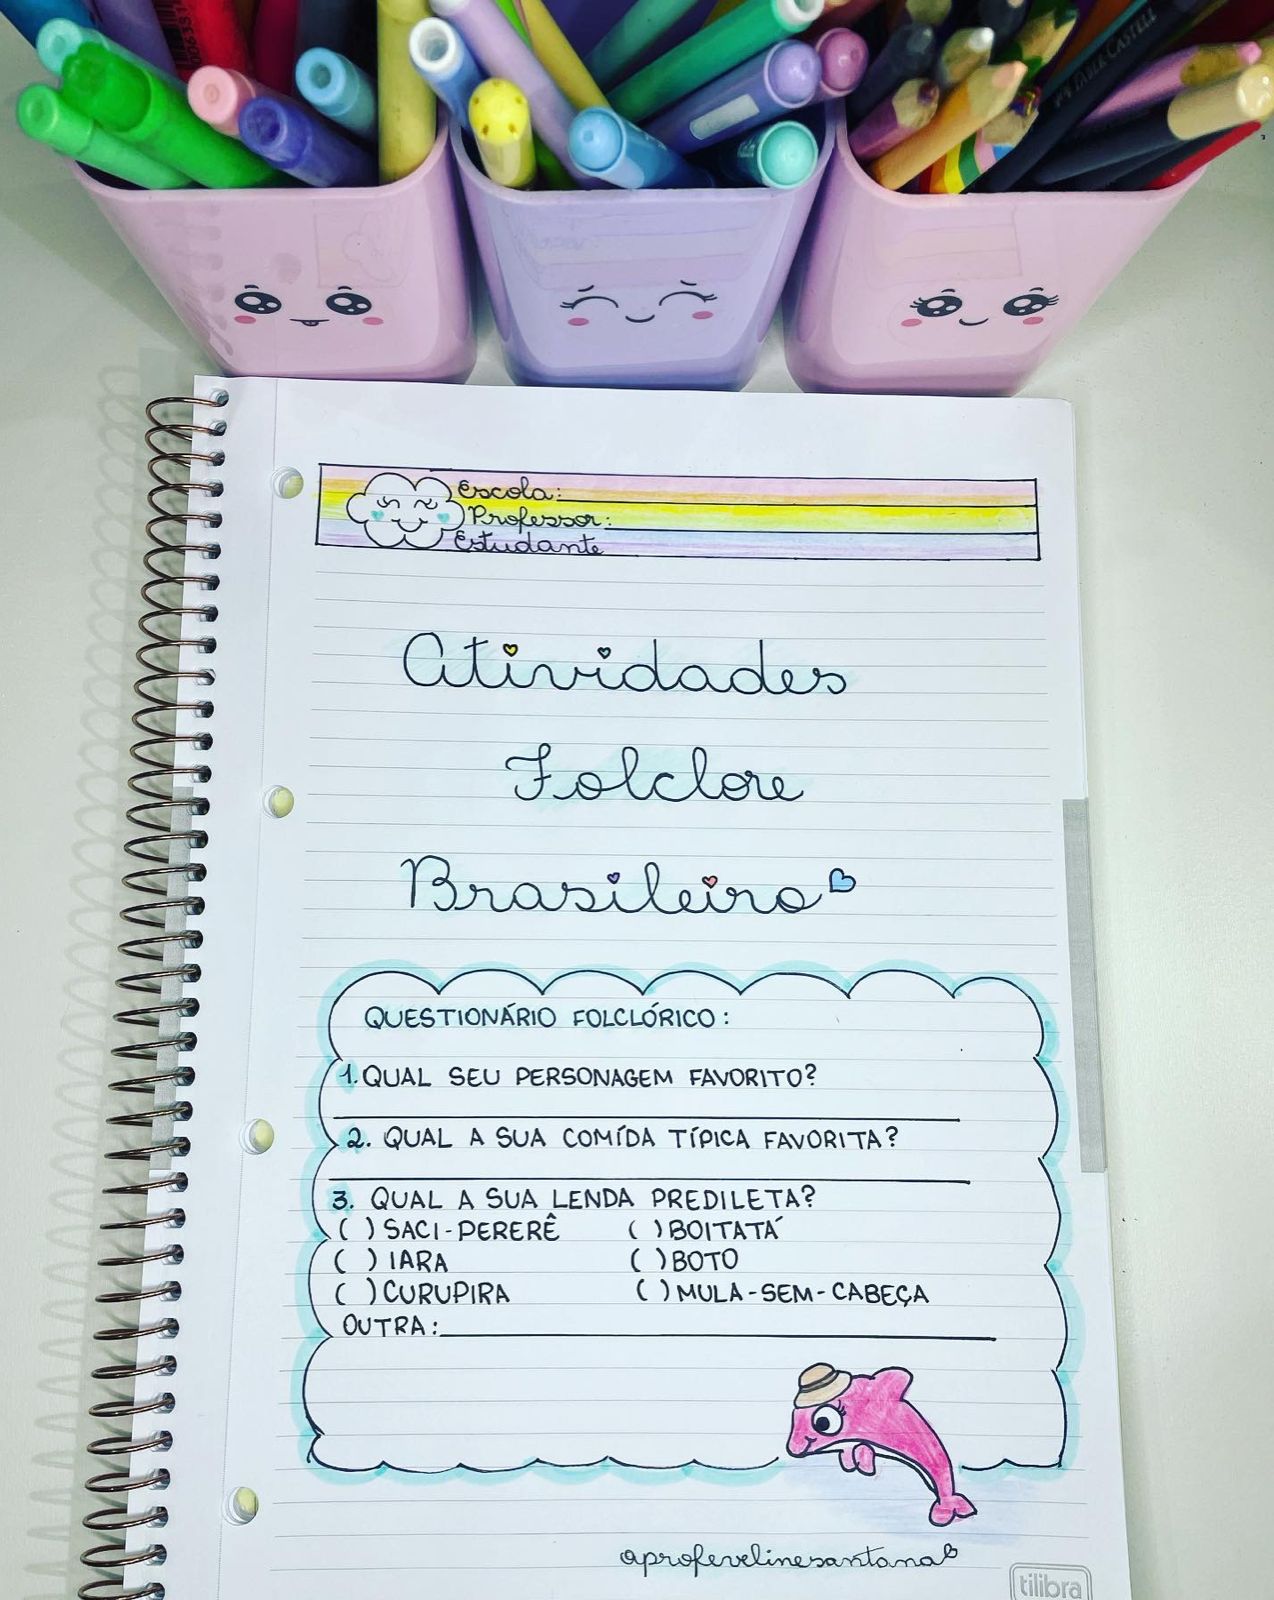 FABER-CASTELL
Escola:
Professor:
Estudante
Atividades
Folclore
Brasileiro
QUESTIONÁRIO FOLCLÓRICO:
1. QUAL SEU PERSONAGEM FAVORITO?
2. QUAL A SUA COMÍDA TÍPICA FAVORITA?
3. QUAL A SUA LENDA PREDILETA?
( ) SACI-PERERÊ ( ) BOITATÁ
( ) IARA ( ) BOTO
( ) CURUPIRA ( ) MULA-SEM-CABEÇA
OUTRA:
aprofevelinesantana
tilibra